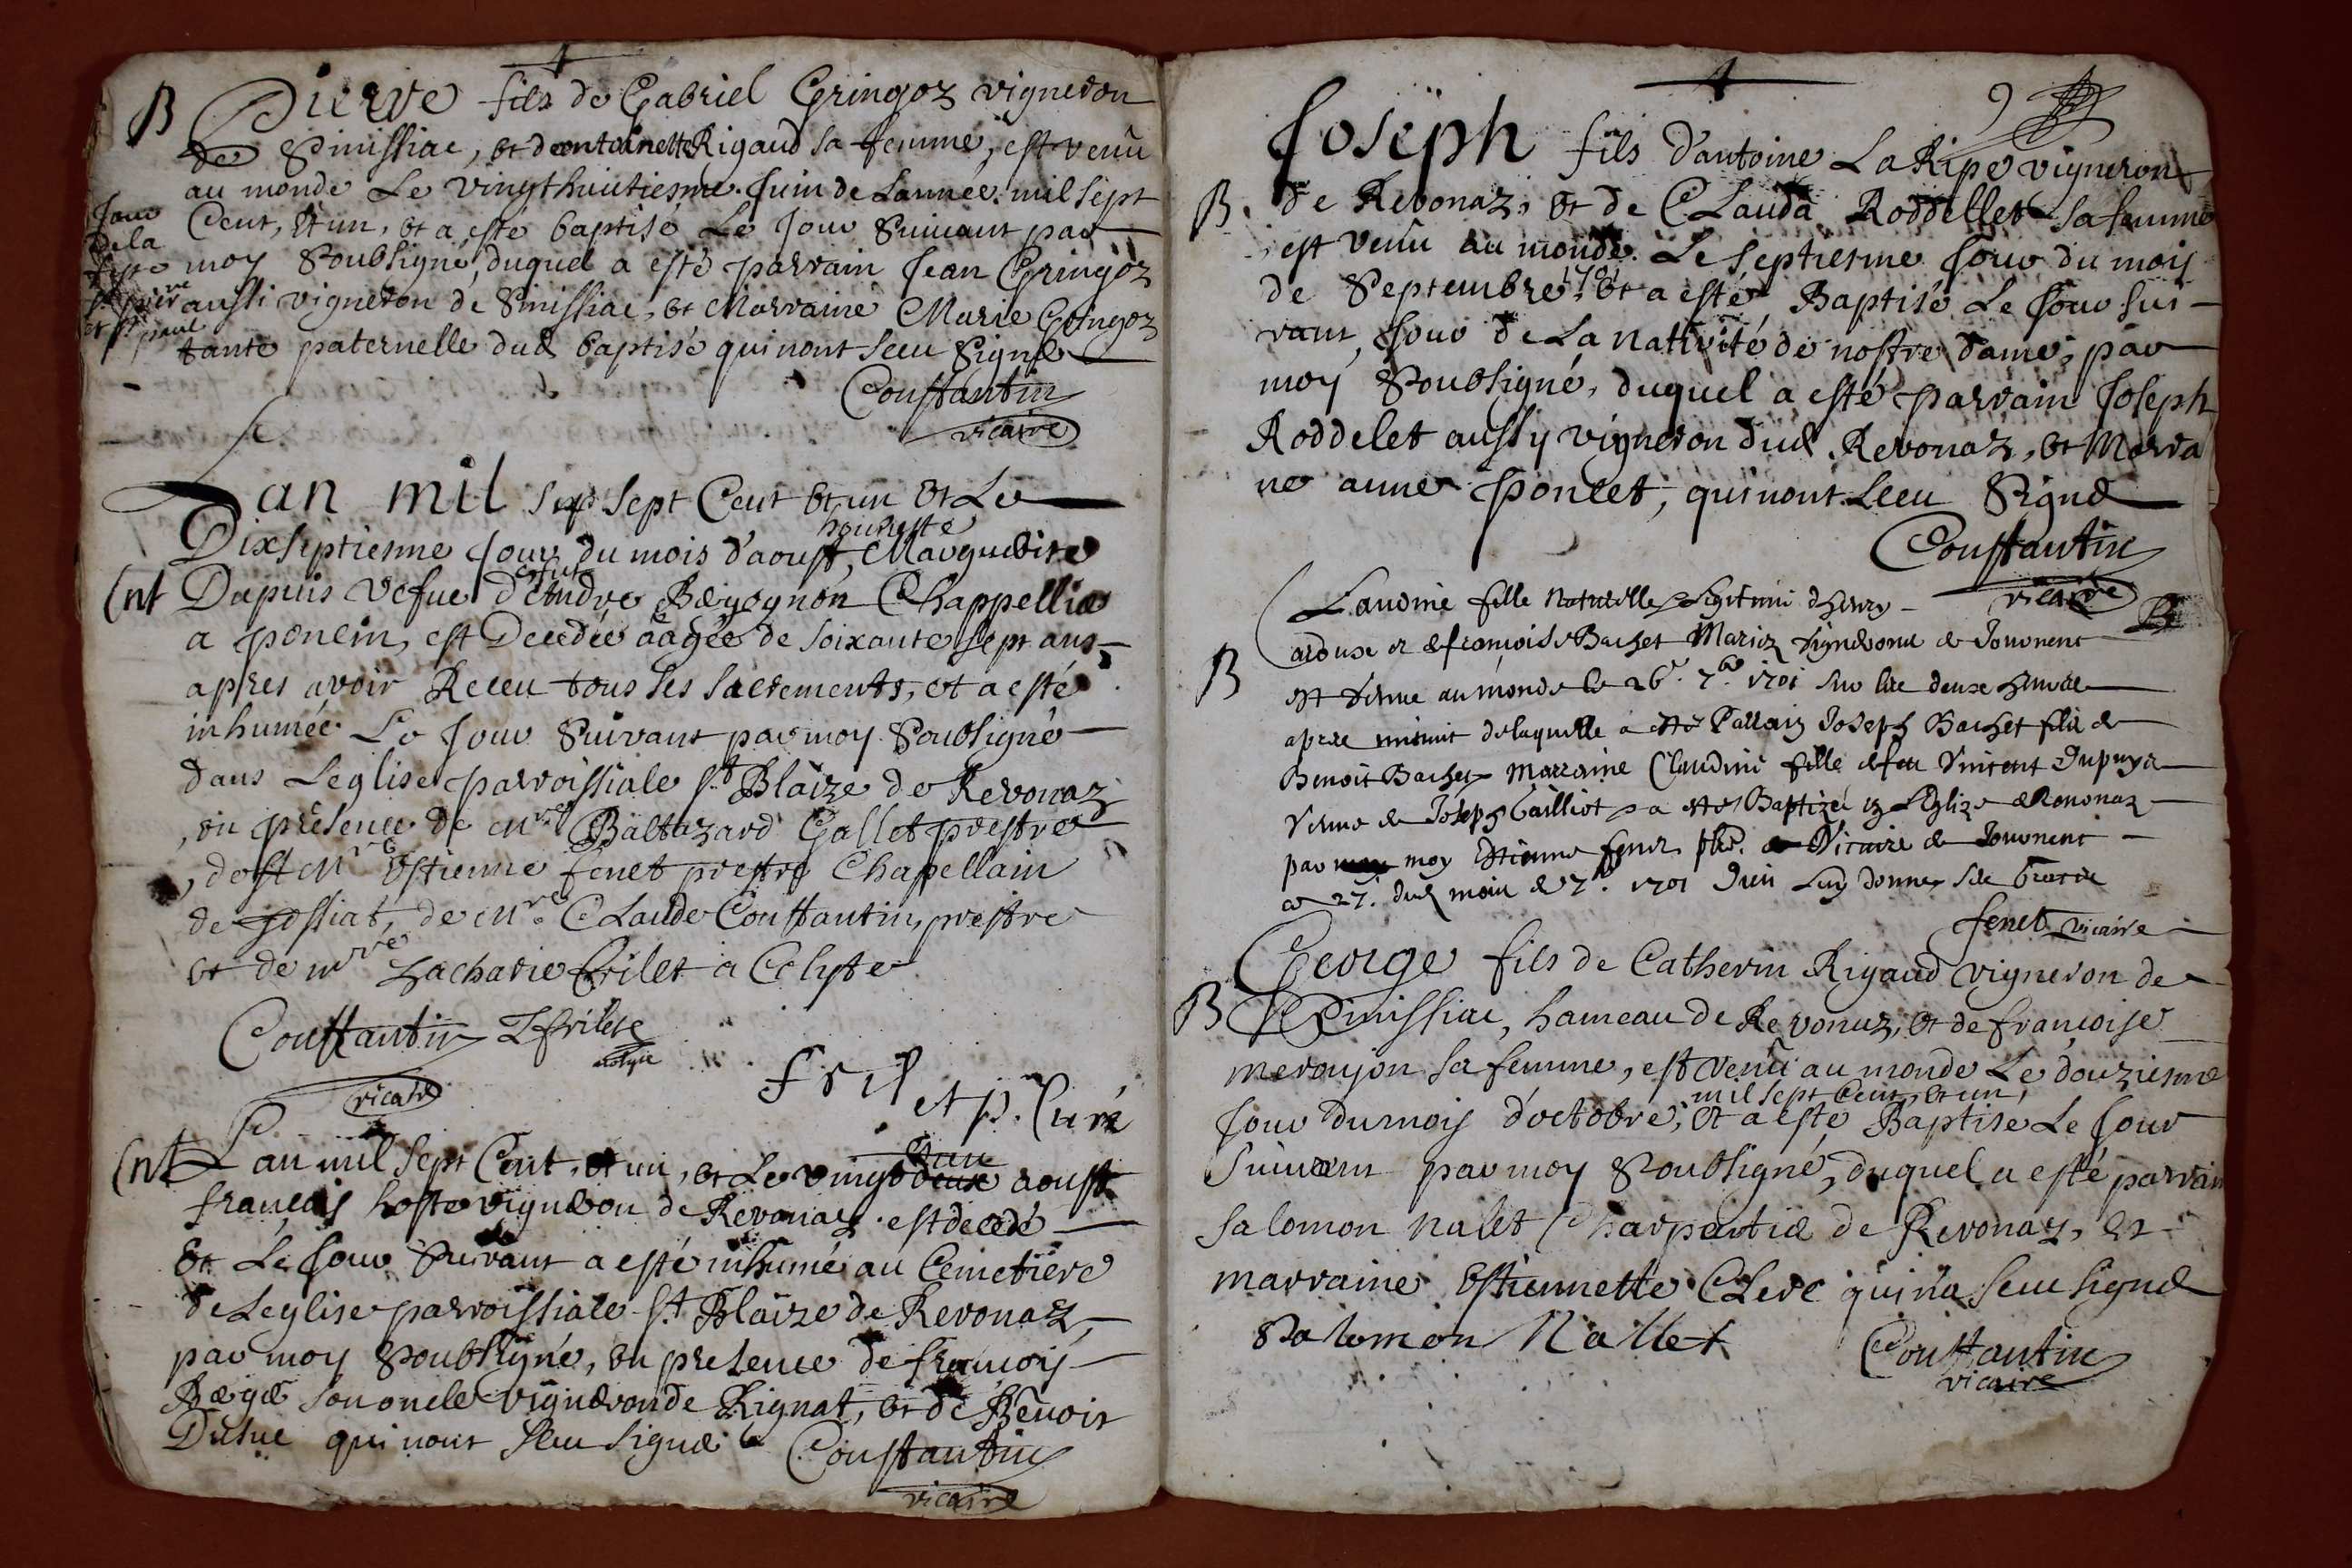 B Pierre fils de Gabriel Gringoz vigneron
de Simissiac, et deantoinette Rigaud sa femme, est venu
au monde Le vingthuictiesme Juin de Lannée mil sept
Cent, et un, et a esté baptisé Le Jour Suivant par
moy Soubsigné, duquel a esté parrain Jean Gringoz
aussi vigneron de Simissiac, et Marraine Marie Gringoz
tante paternelle dud baptisé qui nont sceu Signe
Jour
de la
feste
st pierre
et st paul
Constantin
vicaire
Lan mil sep sept Cent et un et Le
Dixseptiesme Jour du mois d'aoust, honneste Marguerite
Int Dupuis vefue d'estut Andre Bergognon Chappellier
a poncin, est Decedée aagée de soixante sept ans
apres avoir Receu tous ses sacrements, et a esté
inhumée Le Jour Suivant par moy Soubsigné
dans Leglise parroissiale st Blaize de Revonaz
en presence de mre Baltazard Gallet prestre
de mre estienne fenet prestre Chapellain
de Jossiat, de mre CLaude Constantin, prestre
et de mre Zacharie frilet a Colyte
Constantin Z frilet
acolyte
vicaire
fril
et p. Curé
Int Lan mil sept Cent, et un, et Le vingt deux et un aoust
francois hoste vigneron de Revonaz est decedé
et Le Jour Suivant a esté inhumé au Cemetiere
de Leglise parroissiale st Blaize de Revonaz,
par moy Soubsigné, en presence de francois
Bergé son oncle vigneron de Rignat, et de Benoit
qui nont sceu signe
Constantin
vicaire
9
Joseph fils d'antoine LaRipe vigneron
B. de Revonaz, et de CLauda Roddellet sa femme
est venu au monde Le septiesme Jour du mois
de Septembre, 1701 et a esté Baptisé Le Jour sui-
vant, Jour de La nativité de nostre dame, par
moy Soubsigné, duquel a esté parrain Joseph
Roddelet aussy vigneron dud. Revonaz, et Marra
ne anne poncet, qui nont sceu Signe
Constantin
vicaire
Claudine fille Naturelle Legitime d'henry
arduse et de francoise Bachet Mariez vignerons de Journent
B est venue au monde le 26e 7bre 1701 sur les deux heures
apres minuit de laquelle a esté Parrain Joseph Bachet fils de
Benoit Bachet Marraine Claudine fille de feu Vincent Dupuys
vefue de Joseph Gailliot a esté Baptizé en Lglize de Revonaz
par moy moy Etienne fenet ptre. Vicaire de Journent
ce 27. dud mois de 7bre 1701 Dieu Luy donne ses Graces
fenet vicaire
George fils de Catherin Rigaud vigneron de
B Simissiac, hameau de Revonaz, et de francoise
meroujon sa femme, est venu au monde Le douziesme
mil sept Cent, et un,
Jour du mois d'octobre, et a esté Baptise Le Jour
Suivant par moy Soubsigné, duquel a esté parrain
salomon nalet Charpentier de Revonaz, et
marraine Estiennette CLerc qui na sceu signe
Salomon Nallet
Constantin
vicaire